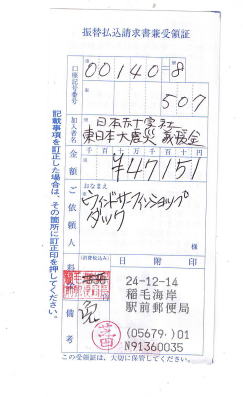 振替払込請求書兼受領証
口座記号番号
00140=8
507
加入者名
日本赤十字社
東日本大震災 義援金
金額
千百十万千百十円
¥47151
ご依頼人
おなまえ
ウィンドサーフィンショップ
ダック
様
料
(消費税込み)
日附印
備考
24-12-14
稲毛海岸
駅前郵便局
(05679・)01
N91360035
記載事項を訂正した場合は、その箇所に訂正印を押してください。
この受領証は、大切に保管してください。